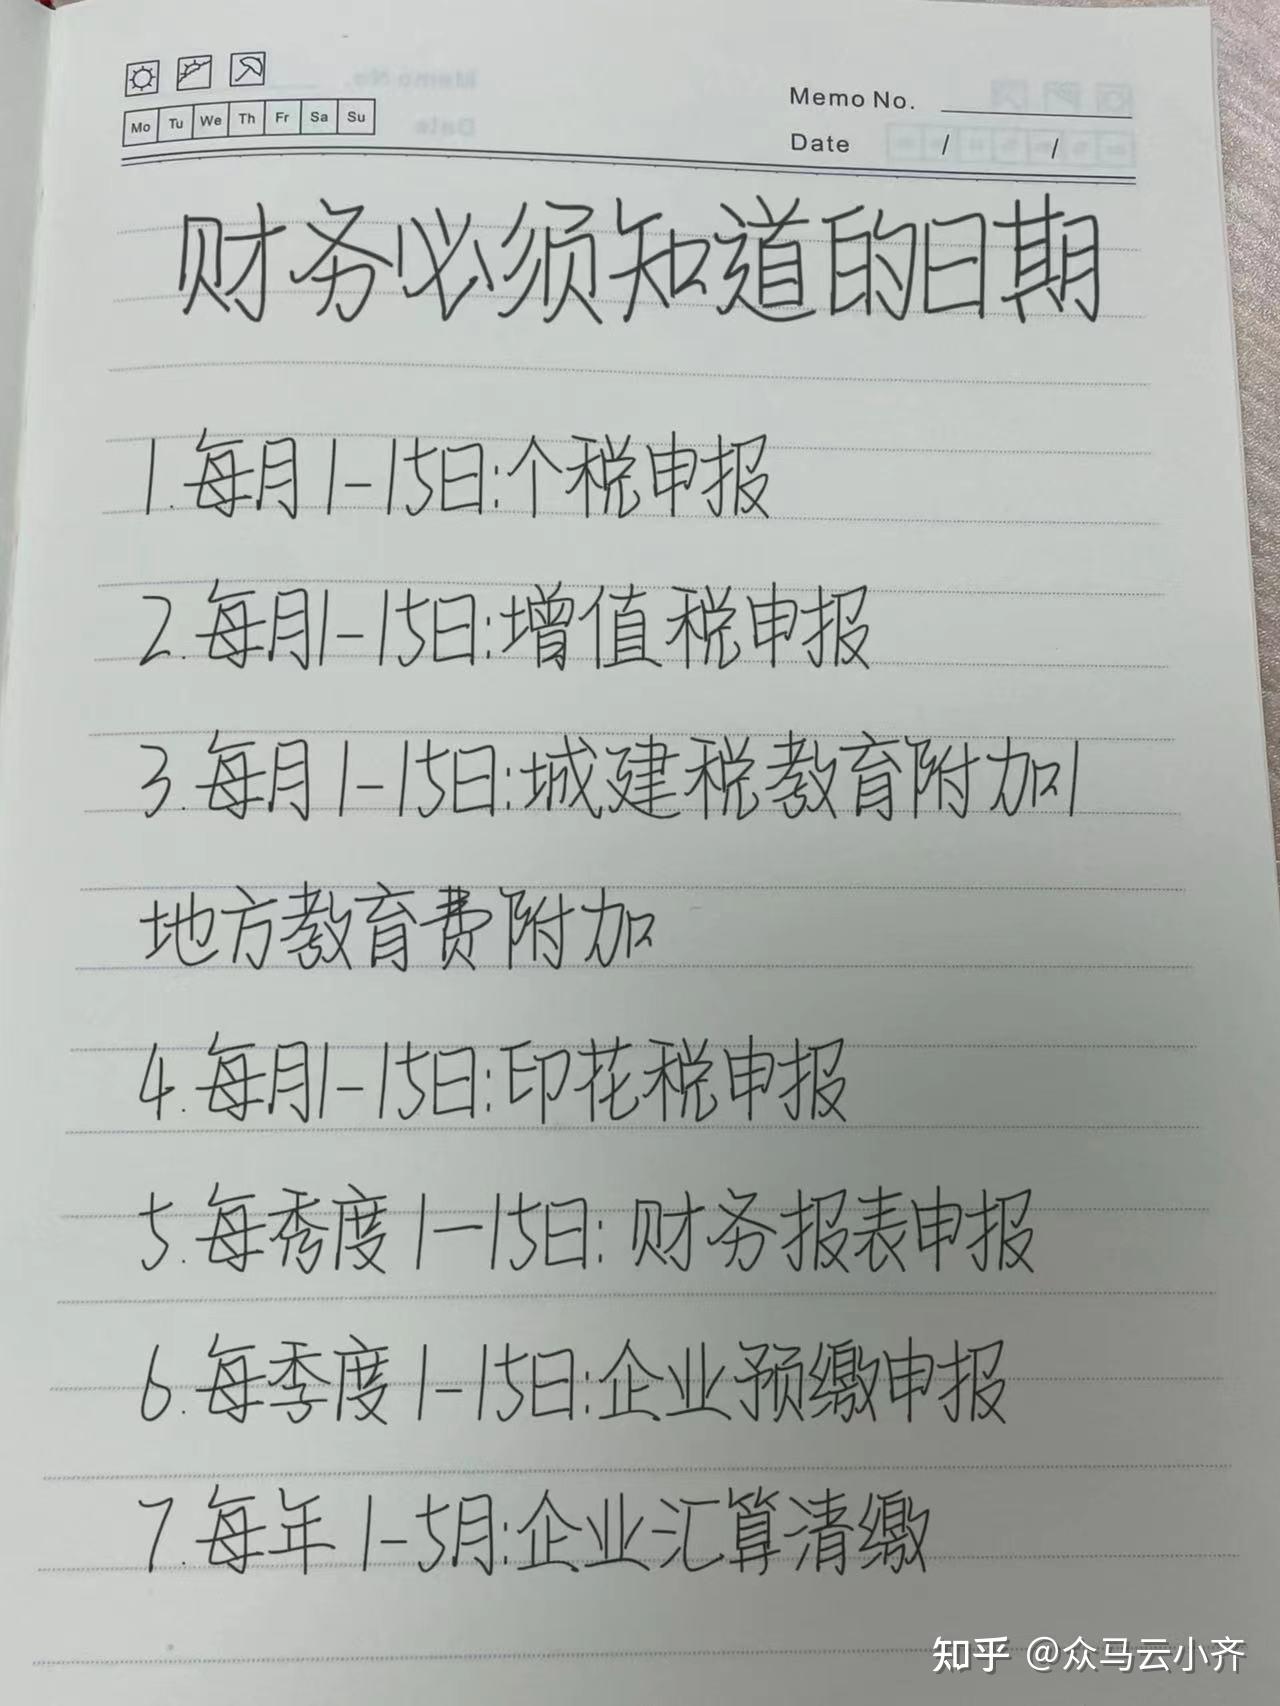 Mo Tu We Th Fr Sa Su
Memo No.
Date / /
财务必须知道的日期
1.每月1-15日:个税申报
2.每月1-15日:增值税申报
3.每月1-15日:城建税教育附加|
地方教育费附加
4.每月1-15日:印花税申报
5.每秀度1-15日:财务报表申报
6.每季度1-15日:企业预缴申报
7.每年1-5月:企业汇算清缴
知乎 @众马云小齐